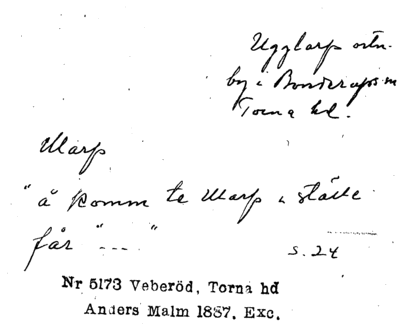 Ugglarp ortn.
by i Bonderups sn
Torna hd.
Ularp
"å komm te Ularp i stället
får "---"
s. 24
Nr 5173 Veberöd, Torna hd
Anders Malm 1887. Exc.